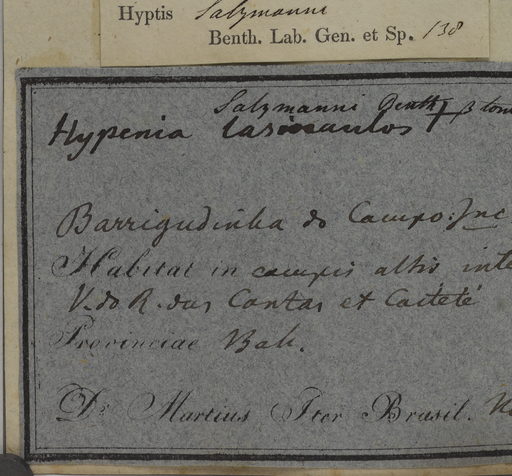 Hyptis Salzmanni
Benth. Lab. Gen. et Sp. 138
Salzmanni Benth
Hypenia lasiocaulos β
Barrigudinha do Campo. Inc
Habitat in campis altis inte
V. do R. das Contas et Caiteté
Provinciae Bah.
Dr. Martius Iter Brasil.